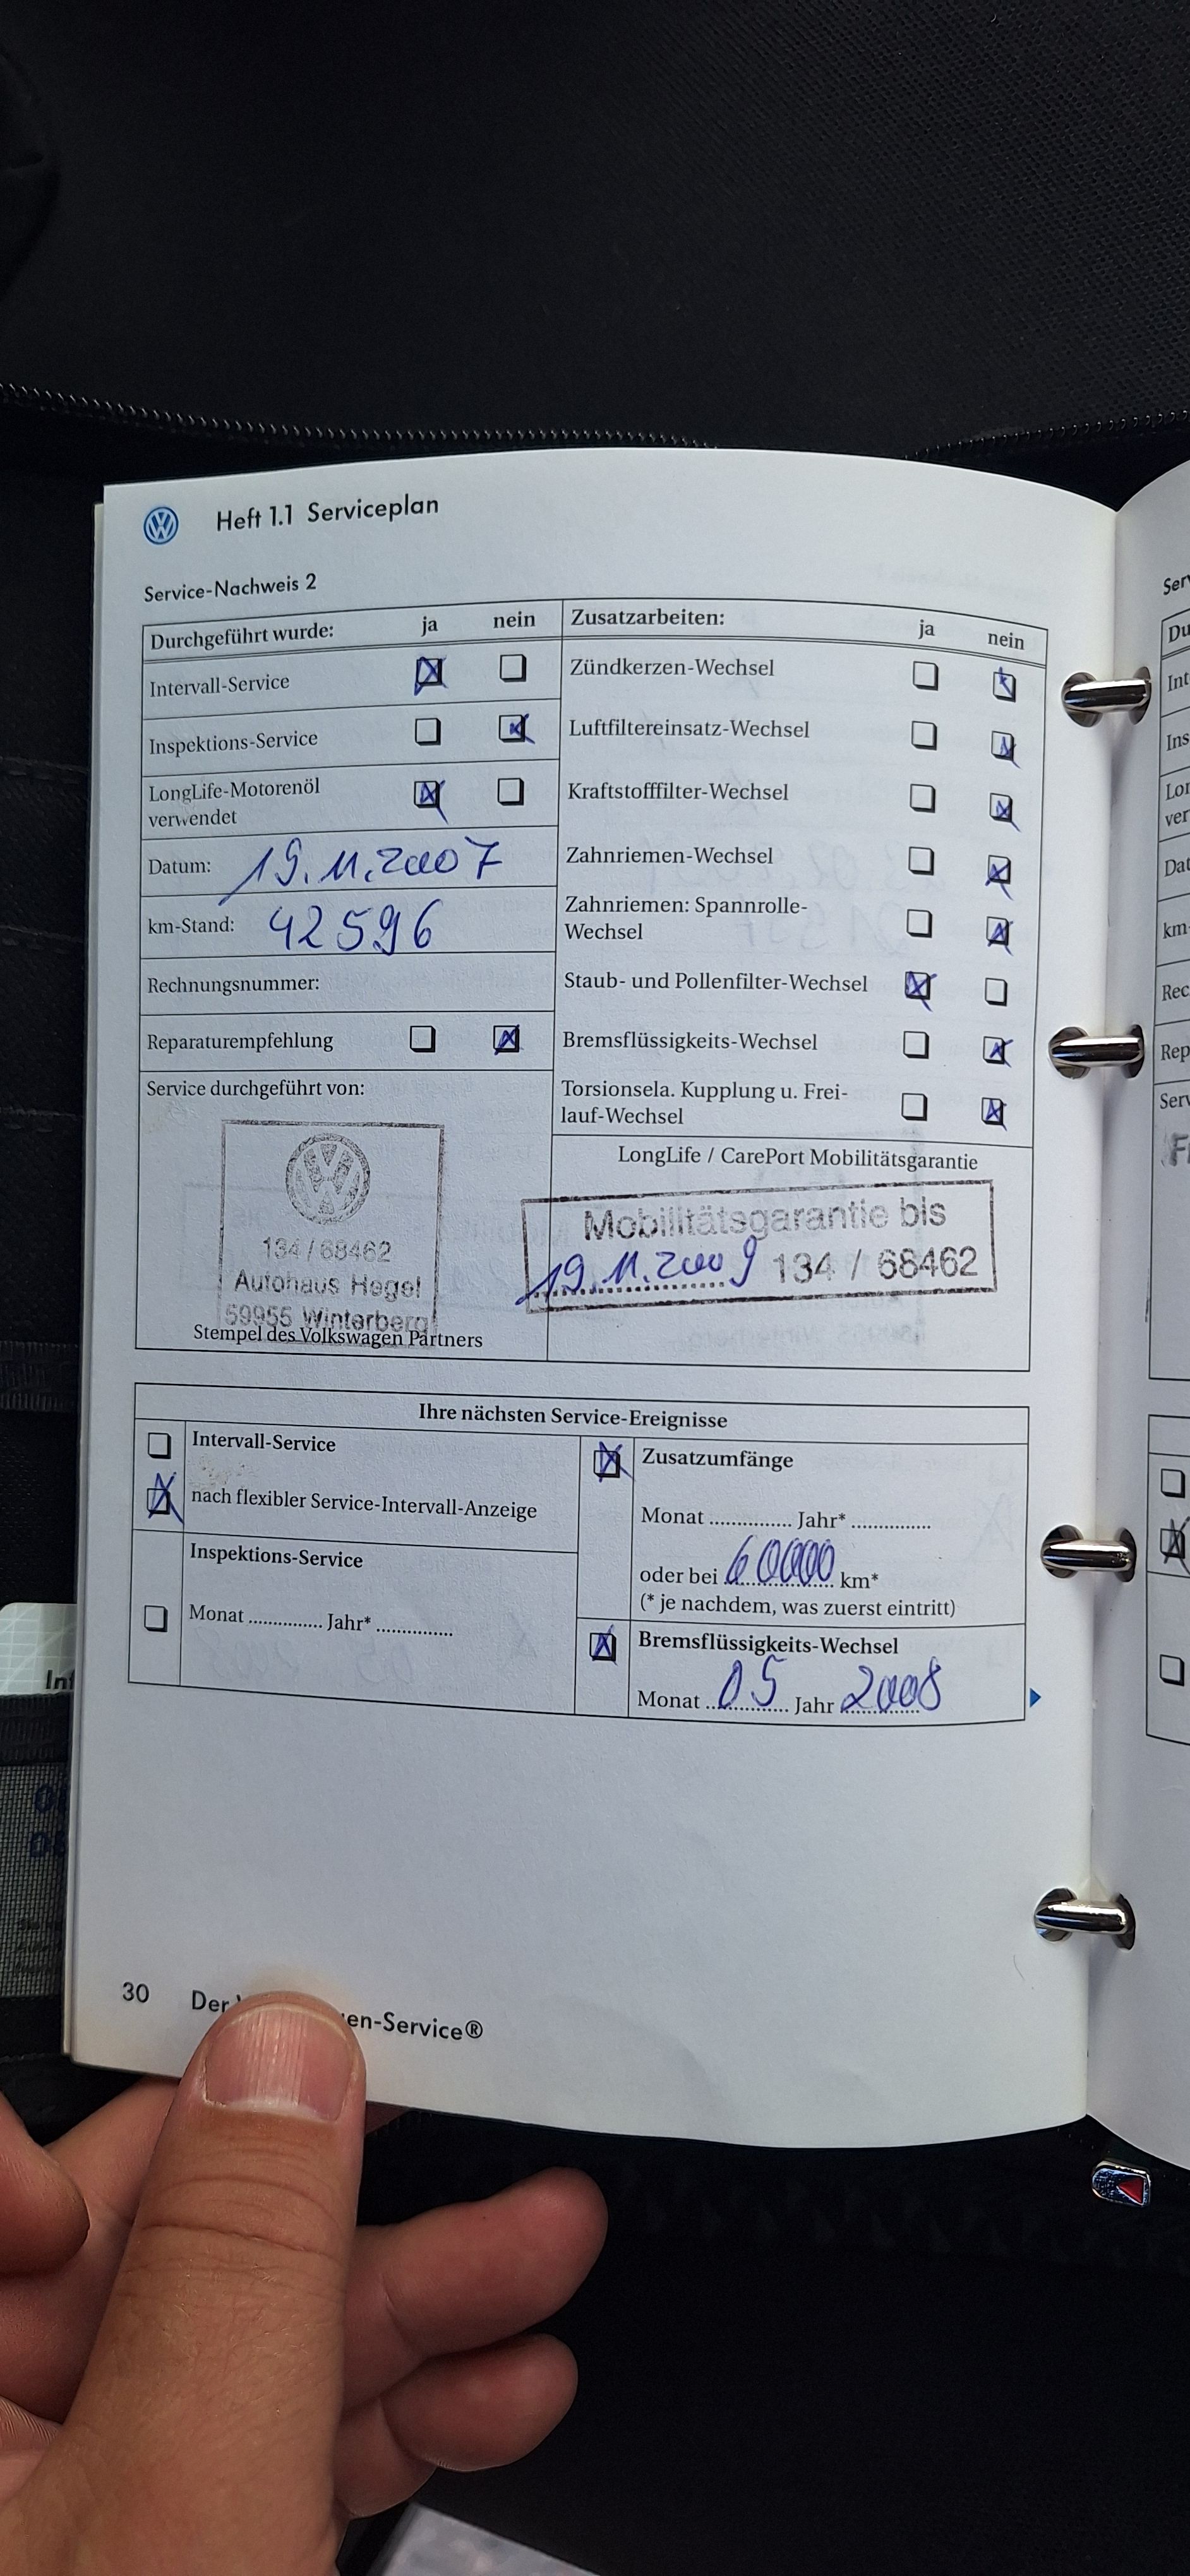 Heft 1.1 Serviceplan
Service-Nachweis 2
Durchgeführt wurde: ja nein
Intervall-Service
Inspektions-Service
LongLife-Motorenöl
verwendet
Datum: 19.11.2007
km-Stand: 42596
Rechnungsnummer:
Reparaturempfehlung
Service durchgeführt von:
134/68462
Autohaus Hegel
59955 Winterberg
Stempel des Volkswagen Partners
Zusatzarbeiten: ja nein
Zündkerzen-Wechsel
Luftfiltereinsatz-Wechsel
Kraftstofffilter-Wechsel
Zahnriemen-Wechsel
Zahnriemen: Spannrolle-
Wechsel
Staub- und Pollenfilter-Wechsel
Bremsflüssigkeits-Wechsel
Torsionsela. Kupplung u. Frei-
lauf-Wechsel
LongLife / CarePort Mobilitätsgarantie
Mobilitätsgarantie bis
19.11.2009 134 / 68462
Ihre nächsten Service-Ereignisse
Intervall-Service
nach flexibler Service-Intervall-Anzeige
Inspektions-Service
Monat .............. Jahr* ..............
Zusatzumfänge
Monat ............... Jahr* ...............
oder bei 60000 km*
(* je nachdem, was zuerst eintritt)
Bremsflüssigkeits-Wechsel
Monat 05 Jahr 2008
30 Der en-Service®
Ser
Du
Int
Ins
Lor
ver
Dat
km-
Rec
Rep
Serv
Int